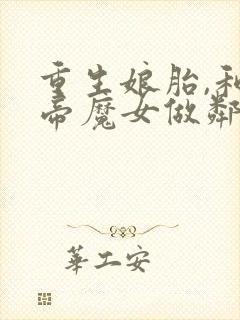 重生娘胎,和
帝魔女做鄰
華工安